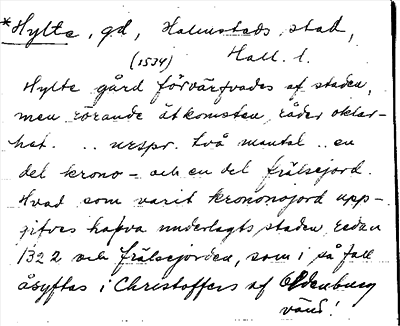 *Hylte, gd, Halmstads stad,
(1534) Hall. l.
Hylte gård förvärfvades af staden,
men rörande åtkomsten råder oklar-
het. .. urspr. två mantal .. en
del krono- och en del frälsejord.
Hvad som varit krononojord upp-
gifves hafva underlagts staden redan
1322 och frälsejorden, som i så fall
åsyftas i Christoffers af Oldenburg
vänb!